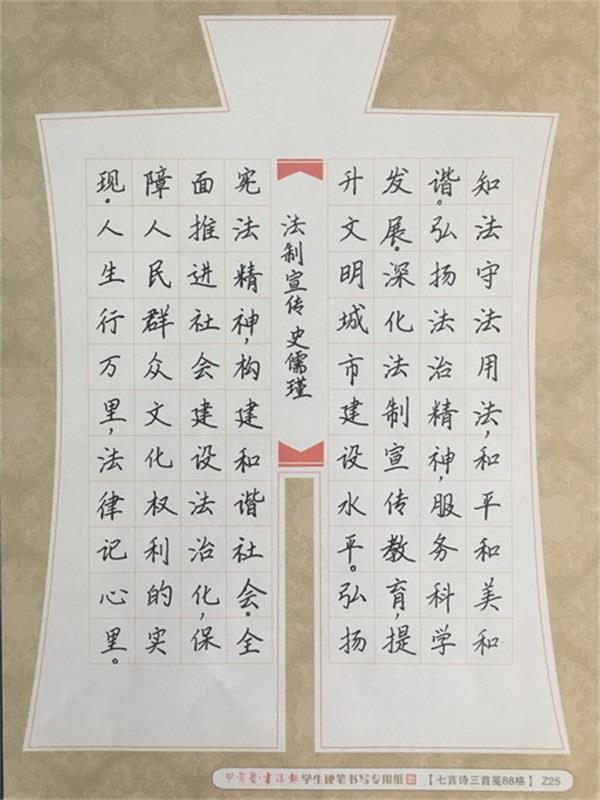 知法守法用法，和平和美和
谐。弘扬法治精神，服务科学
发展。深化法制宣传教育，提
升文明城市建设水平。弘扬
法制宣传 史儒瑾
宪法精神，构建和谐社会。全
面推进社会建设法治化，保
障人民群众文化权利的实
现。人生行万里，法律记心里。
书法报 学生硬笔书写专用纸 【七言诗三首笺88格】 Z25